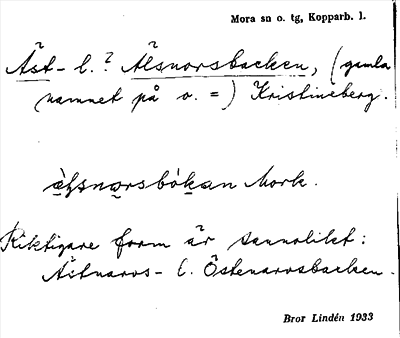 Mora sn o. tg, Kopparb. l.
Äst- l.? Älsnorsbacken, (gamla
namnet på o. =) Kristineberg.
Mork.
Riktigare form är sannolikt:
Ästnaros- l. Östenarosbacken.
Bror Lindén 1933